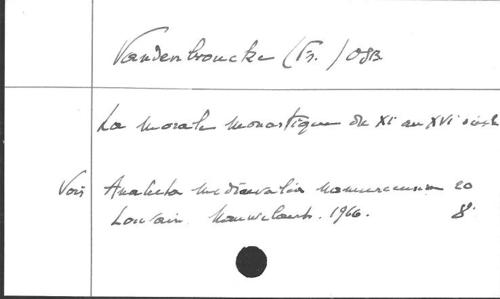 Vandenbroucke (Fr.) OSB
La morale monastique du XI au XVI siècle
Voir Analecta mediaevalia namurcensia 20
Louvain. Nauwelaerts. 1966. 8°